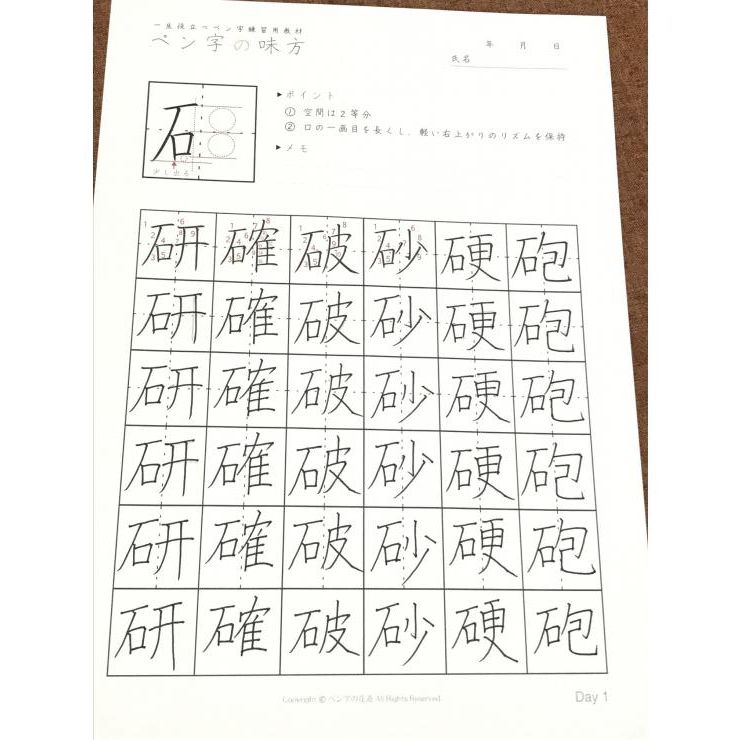 一生役立つペン字練習用教材
ペン字の味方
年 月 日
氏名
石
少し出る
▶ポイント
① 空間は2等分
② 口の一画目を長くし、軽い右上がりのリズムを保持
▶メモ
研 確 破 砂 硬 砲
研 確 破 砂 硬 砲
研 確 破 砂 硬 砲
研 確 破 砂 硬 砲
研 確 破 砂 硬 砲
研 確 破 砂 硬 砲
Copyright © ペン字の花道 All Rights Reserved.
Day 1